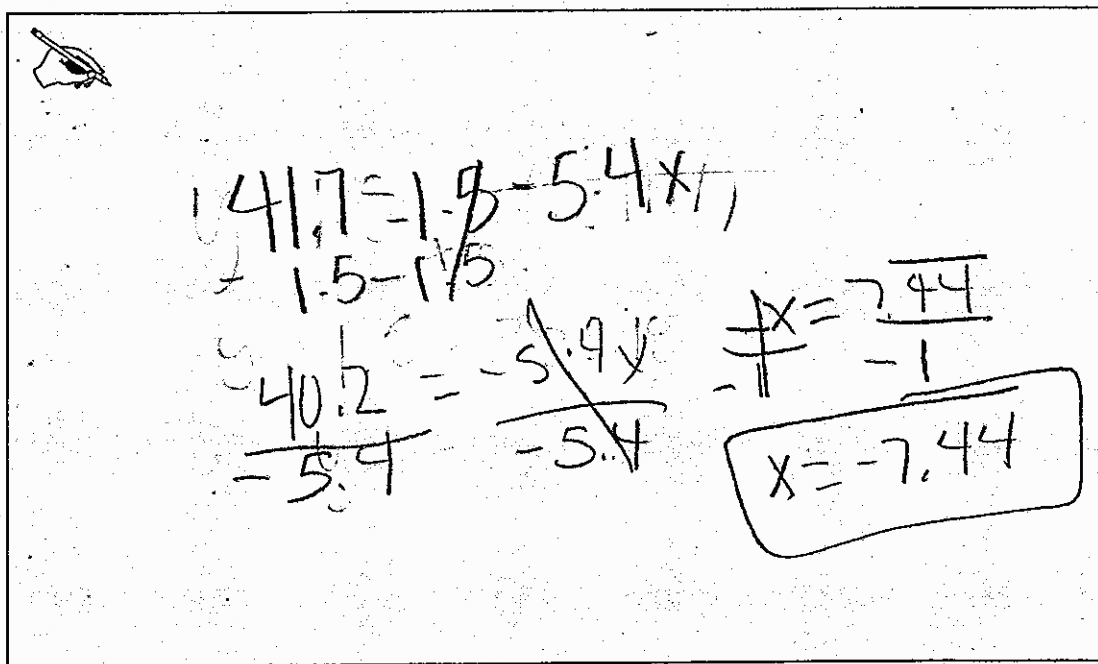 41.7 = 1.5 - 5.4x
- 1.5 - 1.5
40.2 = -5.4x
-5.4 -5.4
-x = 7.44
-1 -1
x = -7.44